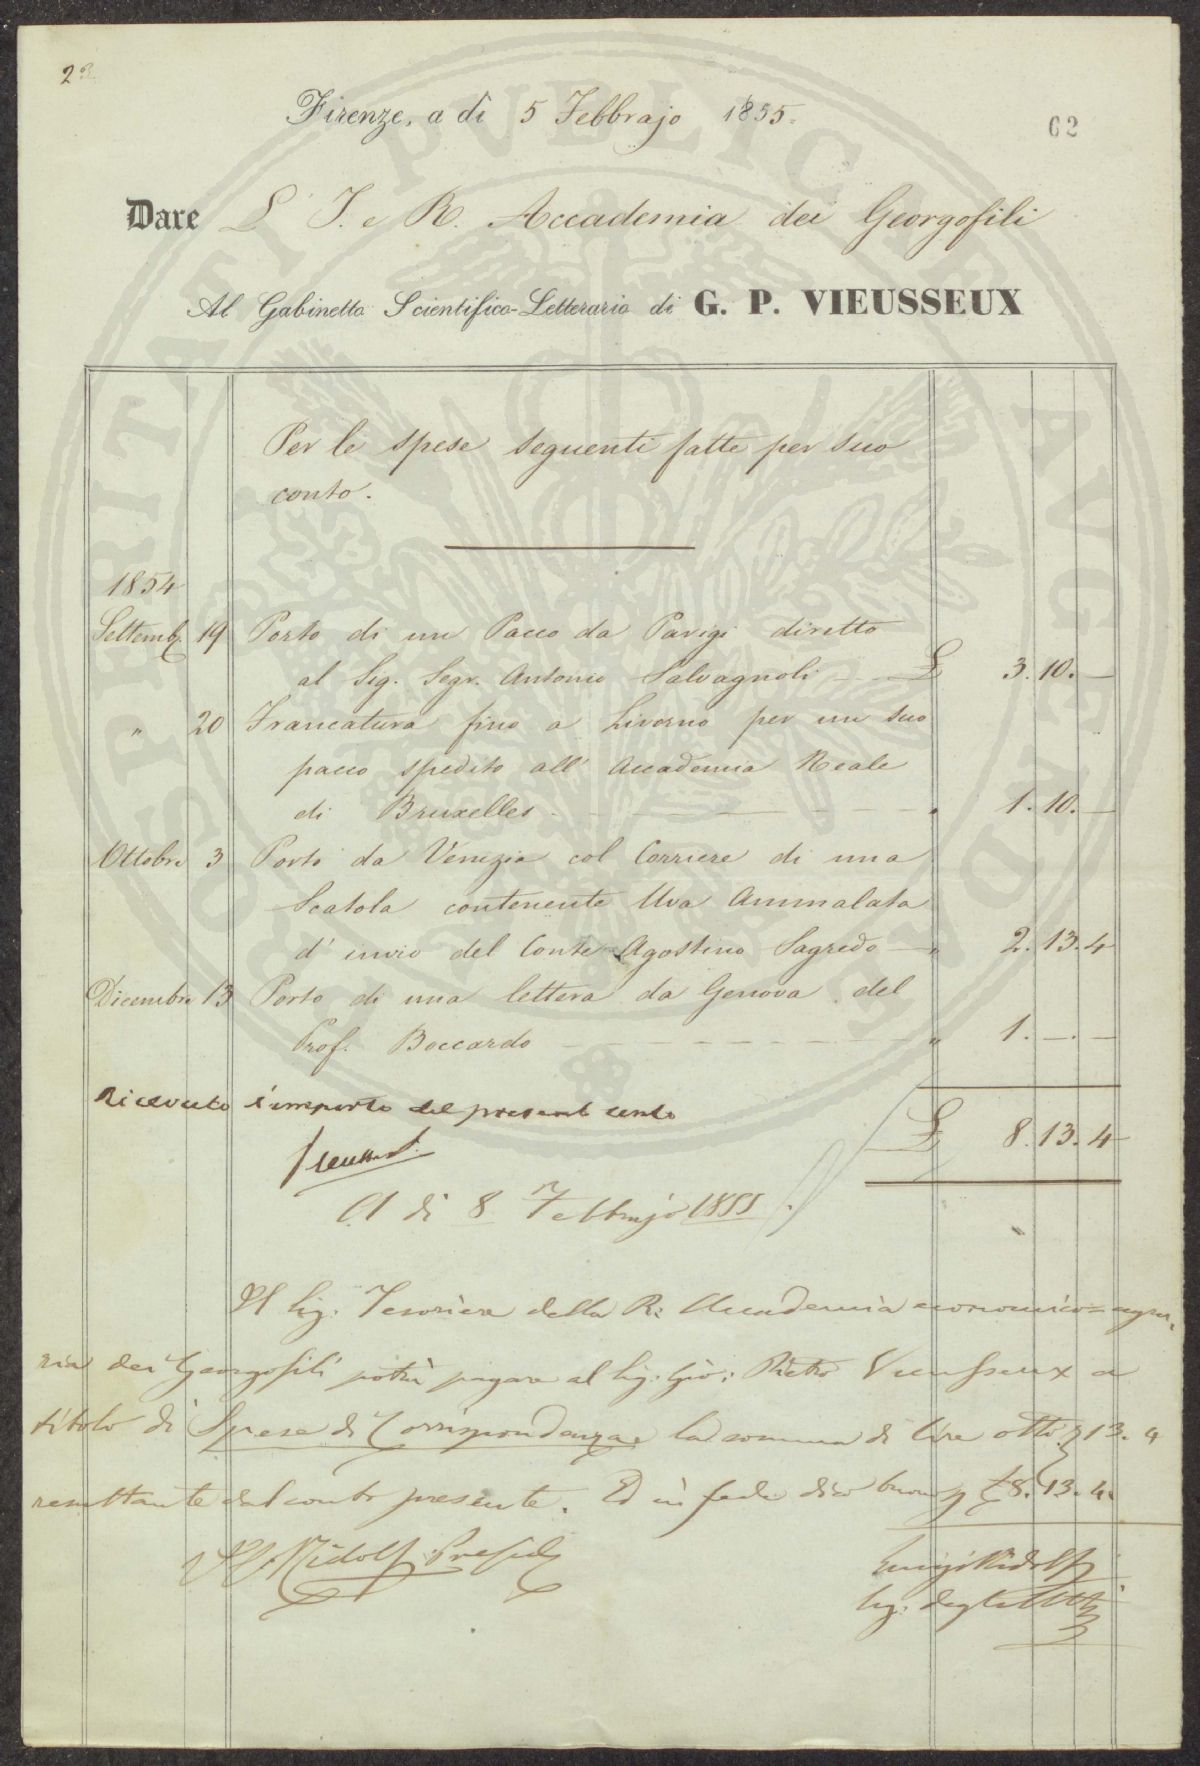 23
Firenze, a dì 5 Febbrajo 1855.
62
Dare L' I. e R. Accademia dei Georgofili
Al Gabinetto Scientifico-Letterario di G. P. VIEUSSEUX
Per le spese seguenti fatte per suo
conto.
1854
Settemb. 19 Porto di un Pacco da Parigi diretto
al Sig. Segr. Antonio Salvagnoli — £ 3. 10. —
" 20 Francatura fino a Livorno per un suo
pacco spedito all' Accademia Reale
di Bruxelles " 1. 10. —
Ottobre 3 Porto da Venezia col Corriere di una
Scatola contenente Uva Ammalata
d' invio del Conte Agostino Sagredo — " 2. 13. 4
Dicembre 13 Porto di una lettera da Genova del
Prof. Boccardo " 1. —. —
Ricevuto l'importo del presente conto
£ 8. 13. 4
Vieusseux
A dì 8 Febbrajo 1855.
Il Sig. Tesoriere della R. Accademia economico=agra-
ria dei Georgofili potrà pagare al Sig. Gio: Pietro Vieusseux a
titolo di Spese di Corrispondenza la somma di lire otto 13. 4
resultante dal conto presente. Ed in fede dico buono p £ 8. 13. 4.
Ridolfi Presid
Luigi Ridolfi
Seg. degli Atti
PROSPERITATI PUBLICAE AUGENDAE